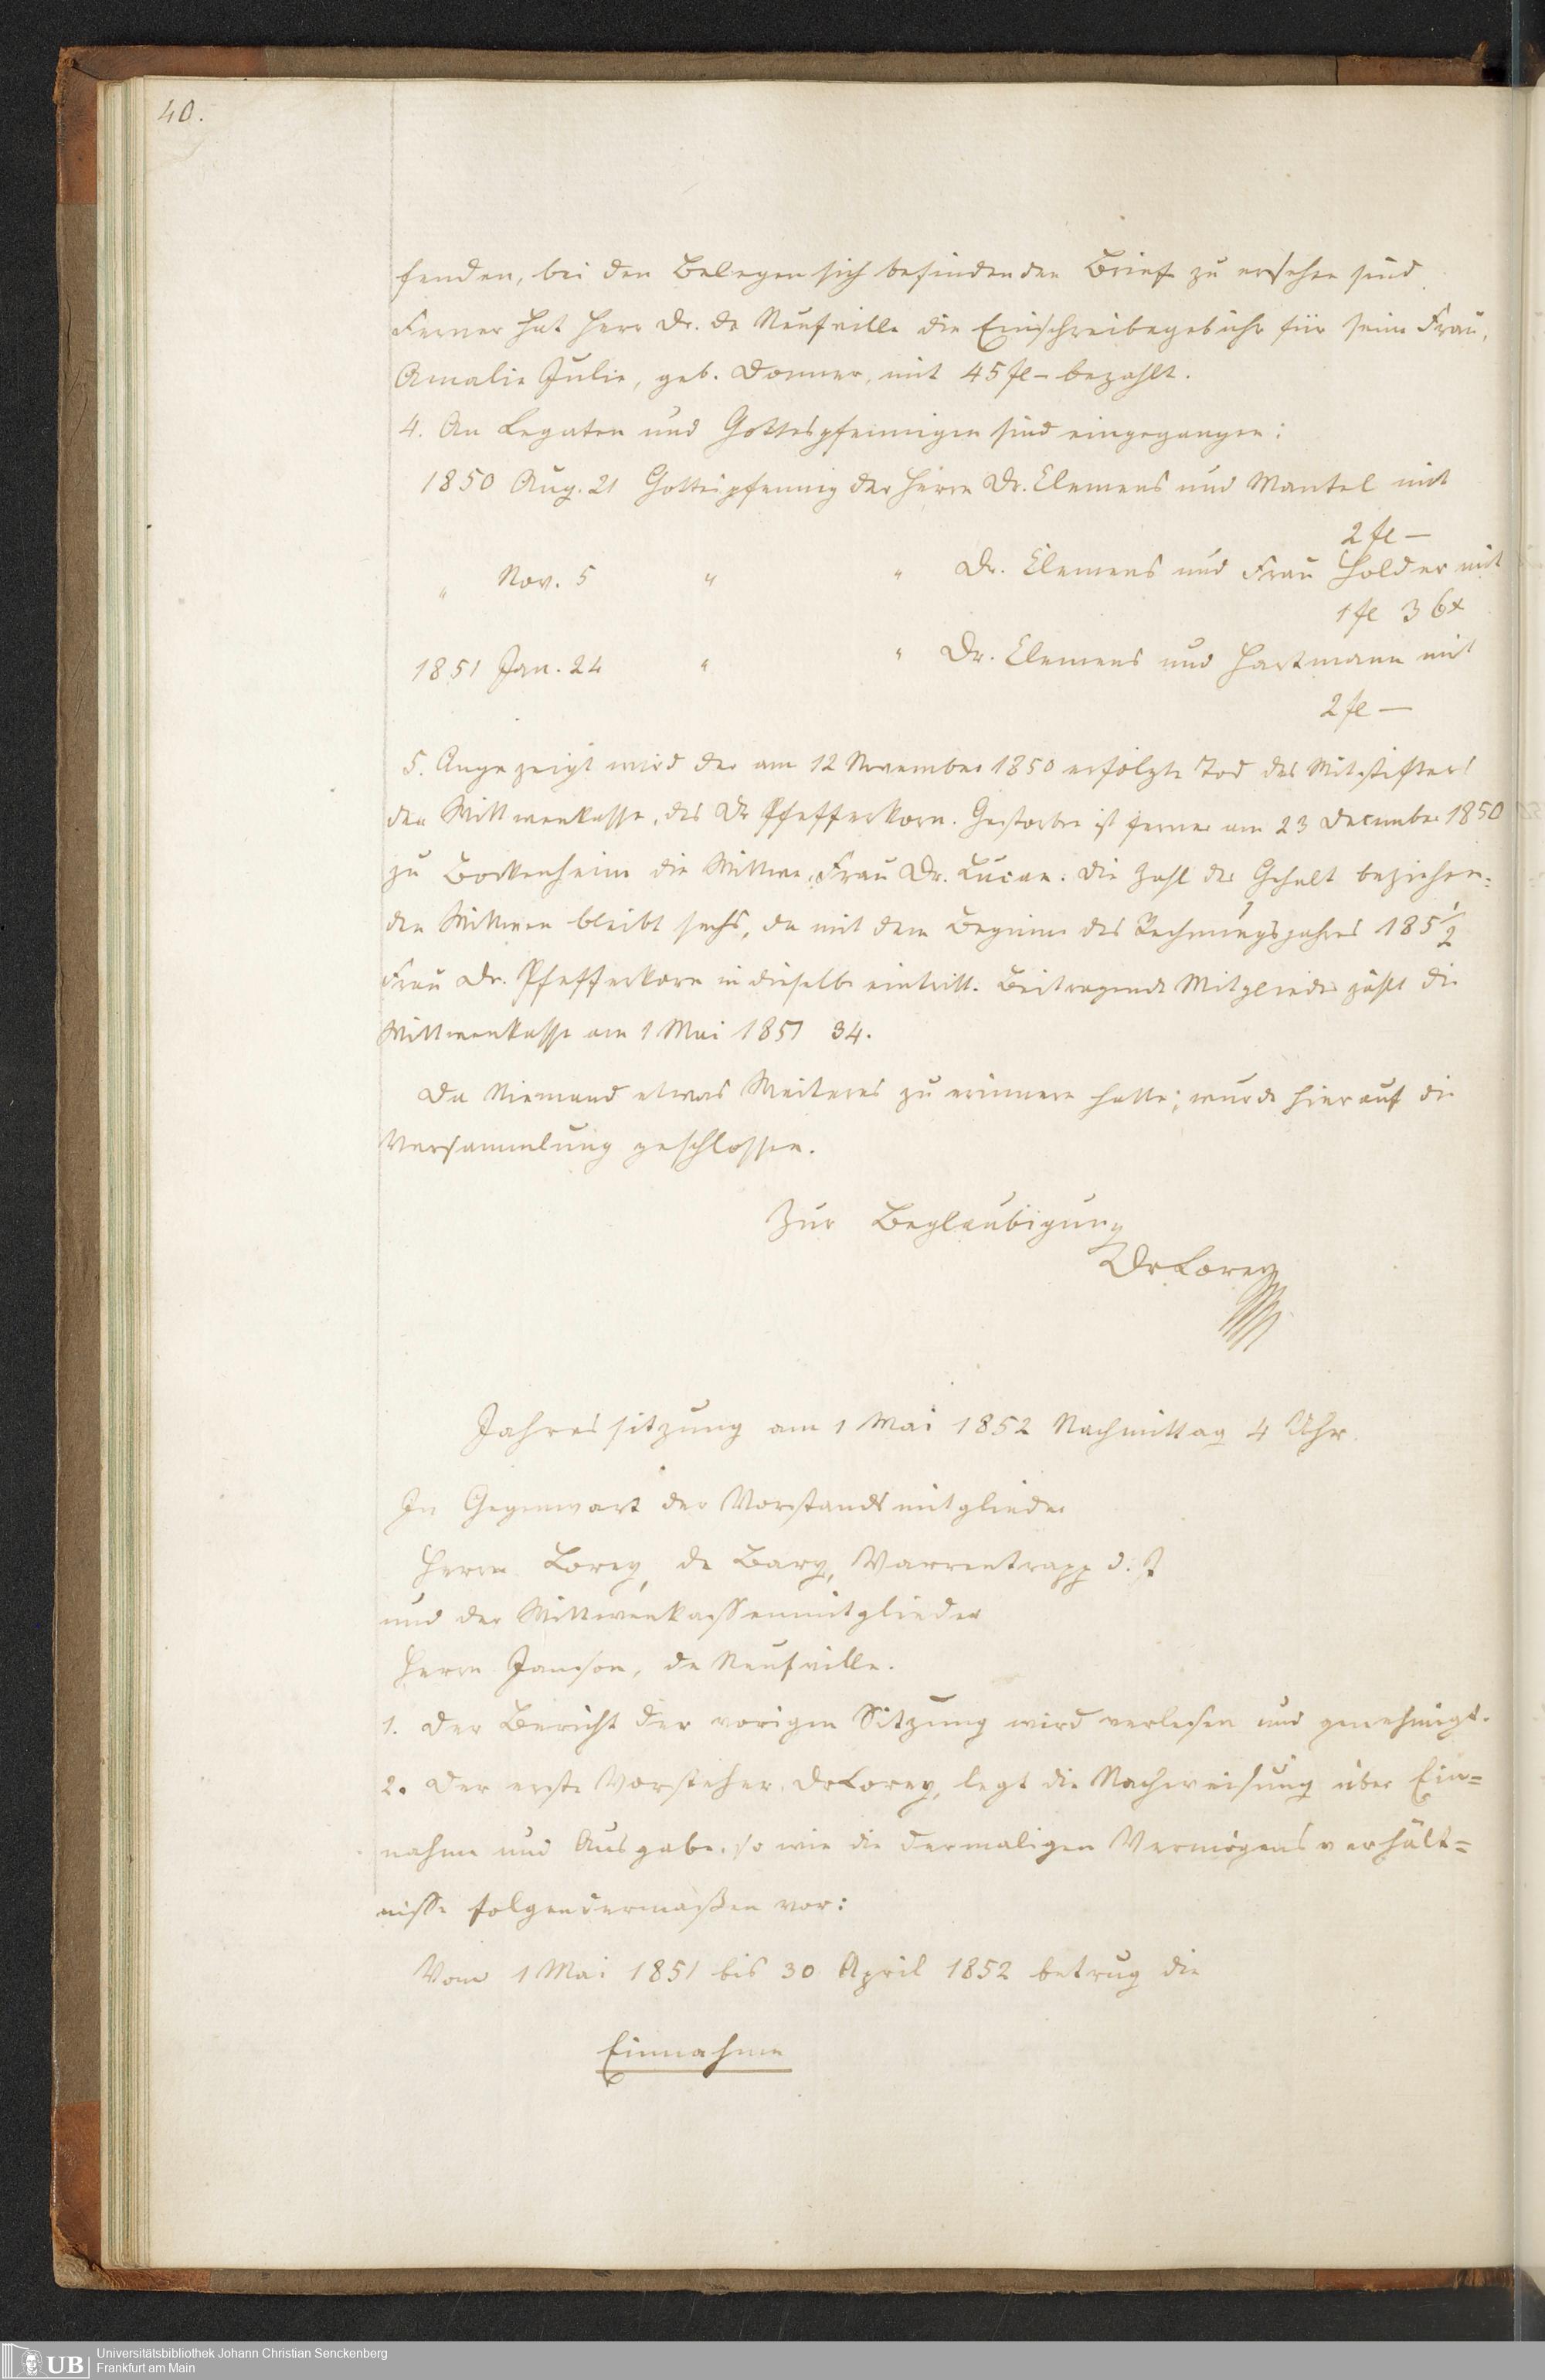 40.
fenden, bei den Belegen sich befindenden Brief zu ersehen sind.
Ferner hat Herr Dr. de Neufville die Einschreibegebühr für seine Frau,
Amalie Julie, geb. Donner, mit 45 fl – bezahlt.
4. An Legaten und Gottespfennigen sind eingegangen:
1850 Aug. 21 Gottespfennig der Herrn Dr. Clemens und Mantel mit
2 fl —
" Nov. 5 " " Dr. Clemens und Frau Holder mit
1 fl 36 x
1851 Jan. 24 " " Dr. Clemens und Hartmann mit
2 fl —
5. Angezeigt wird der am 12 November 1850 erfolgte Tod des Mitstifters
der Wittwenkasse, des Dr Pfefferkorn. Gestorben ist ferner am 23 December 1850
zu Bockenheim die Wittwe, Frau Dr. Lucae. Die Zahl der Gehalt beziehen=
den Wittwen bleibt sechs, da mit dem Beginne des Rechnungsjahres 185 1/2
Frau Dr. Pfefferkorn in dieselbe eintritt. Beitragende Mitglieder zählt die
Wittwenkasse am 1 Mai 1851 34.
Da Niemand etwas Weiteres zu erinnern hatte; wurde hierauf die
Versammlung geschlossen.
Zur Beglaubigung
Dr Lorey
Jahressitzung am 1 Mai 1852 Nachmittag 4 Uhr.
In Gegenwart der Vorstandsmitglieder
Herrn Lorey, de Bary, Varrentrapp d. J
und der Wittwenkassenmitglieder
Herrn Jamson, de Neufville.
1. Der Bericht der vorigen Sitzung wird verlesen und genehmigt.
2. Der erste Vorsteher, Dr Lorey, legt die Nachweisung über Ein=
nahme und Ausgabe, so wie die dermaligen Vermögensverhält=
nisse folgendermaßen vor:
Vom 1 Mai 1851 bis 30 April 1852 betrug die
Einnahme
UB
Universitätsbibliothek Johann Christian Senckenberg
Frankfurt am Main